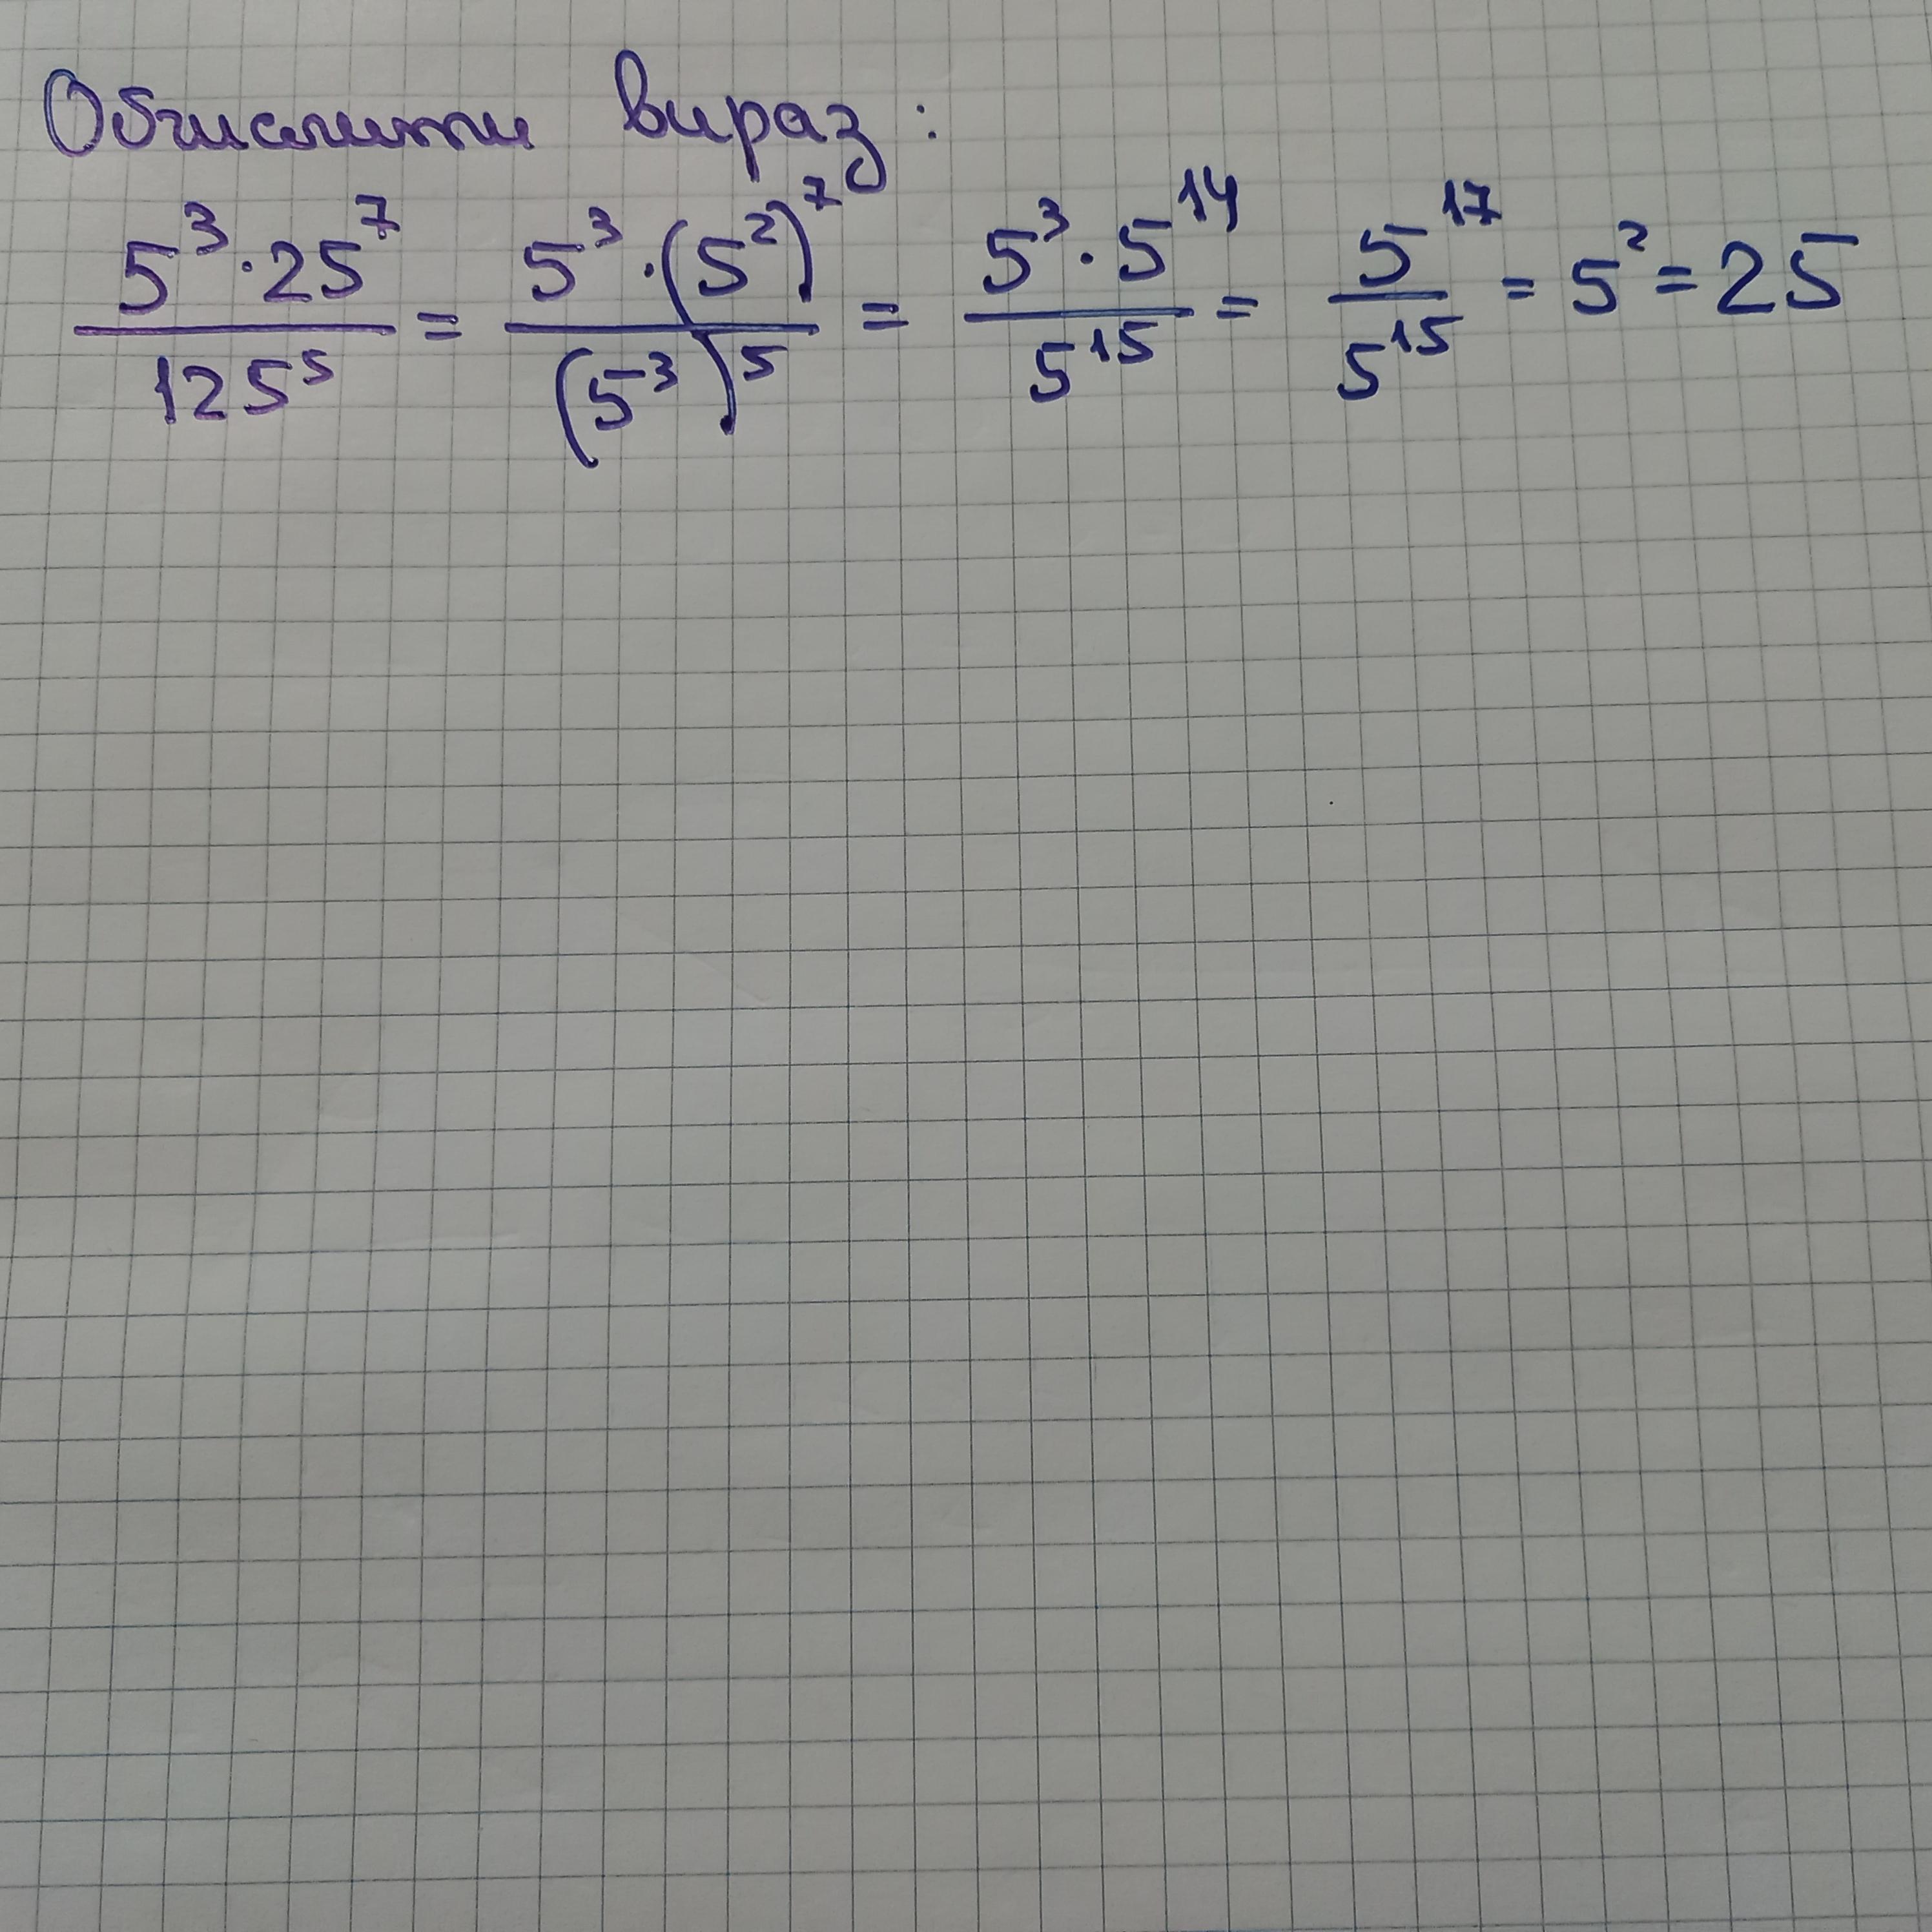 Обчислити вираз:
5³·25⁷/125⁵ = 5³·(5²)⁷/(5³)⁵ = 5³·5¹⁴/5¹⁵ = 5¹⁷/5¹⁵ = 5² = 25